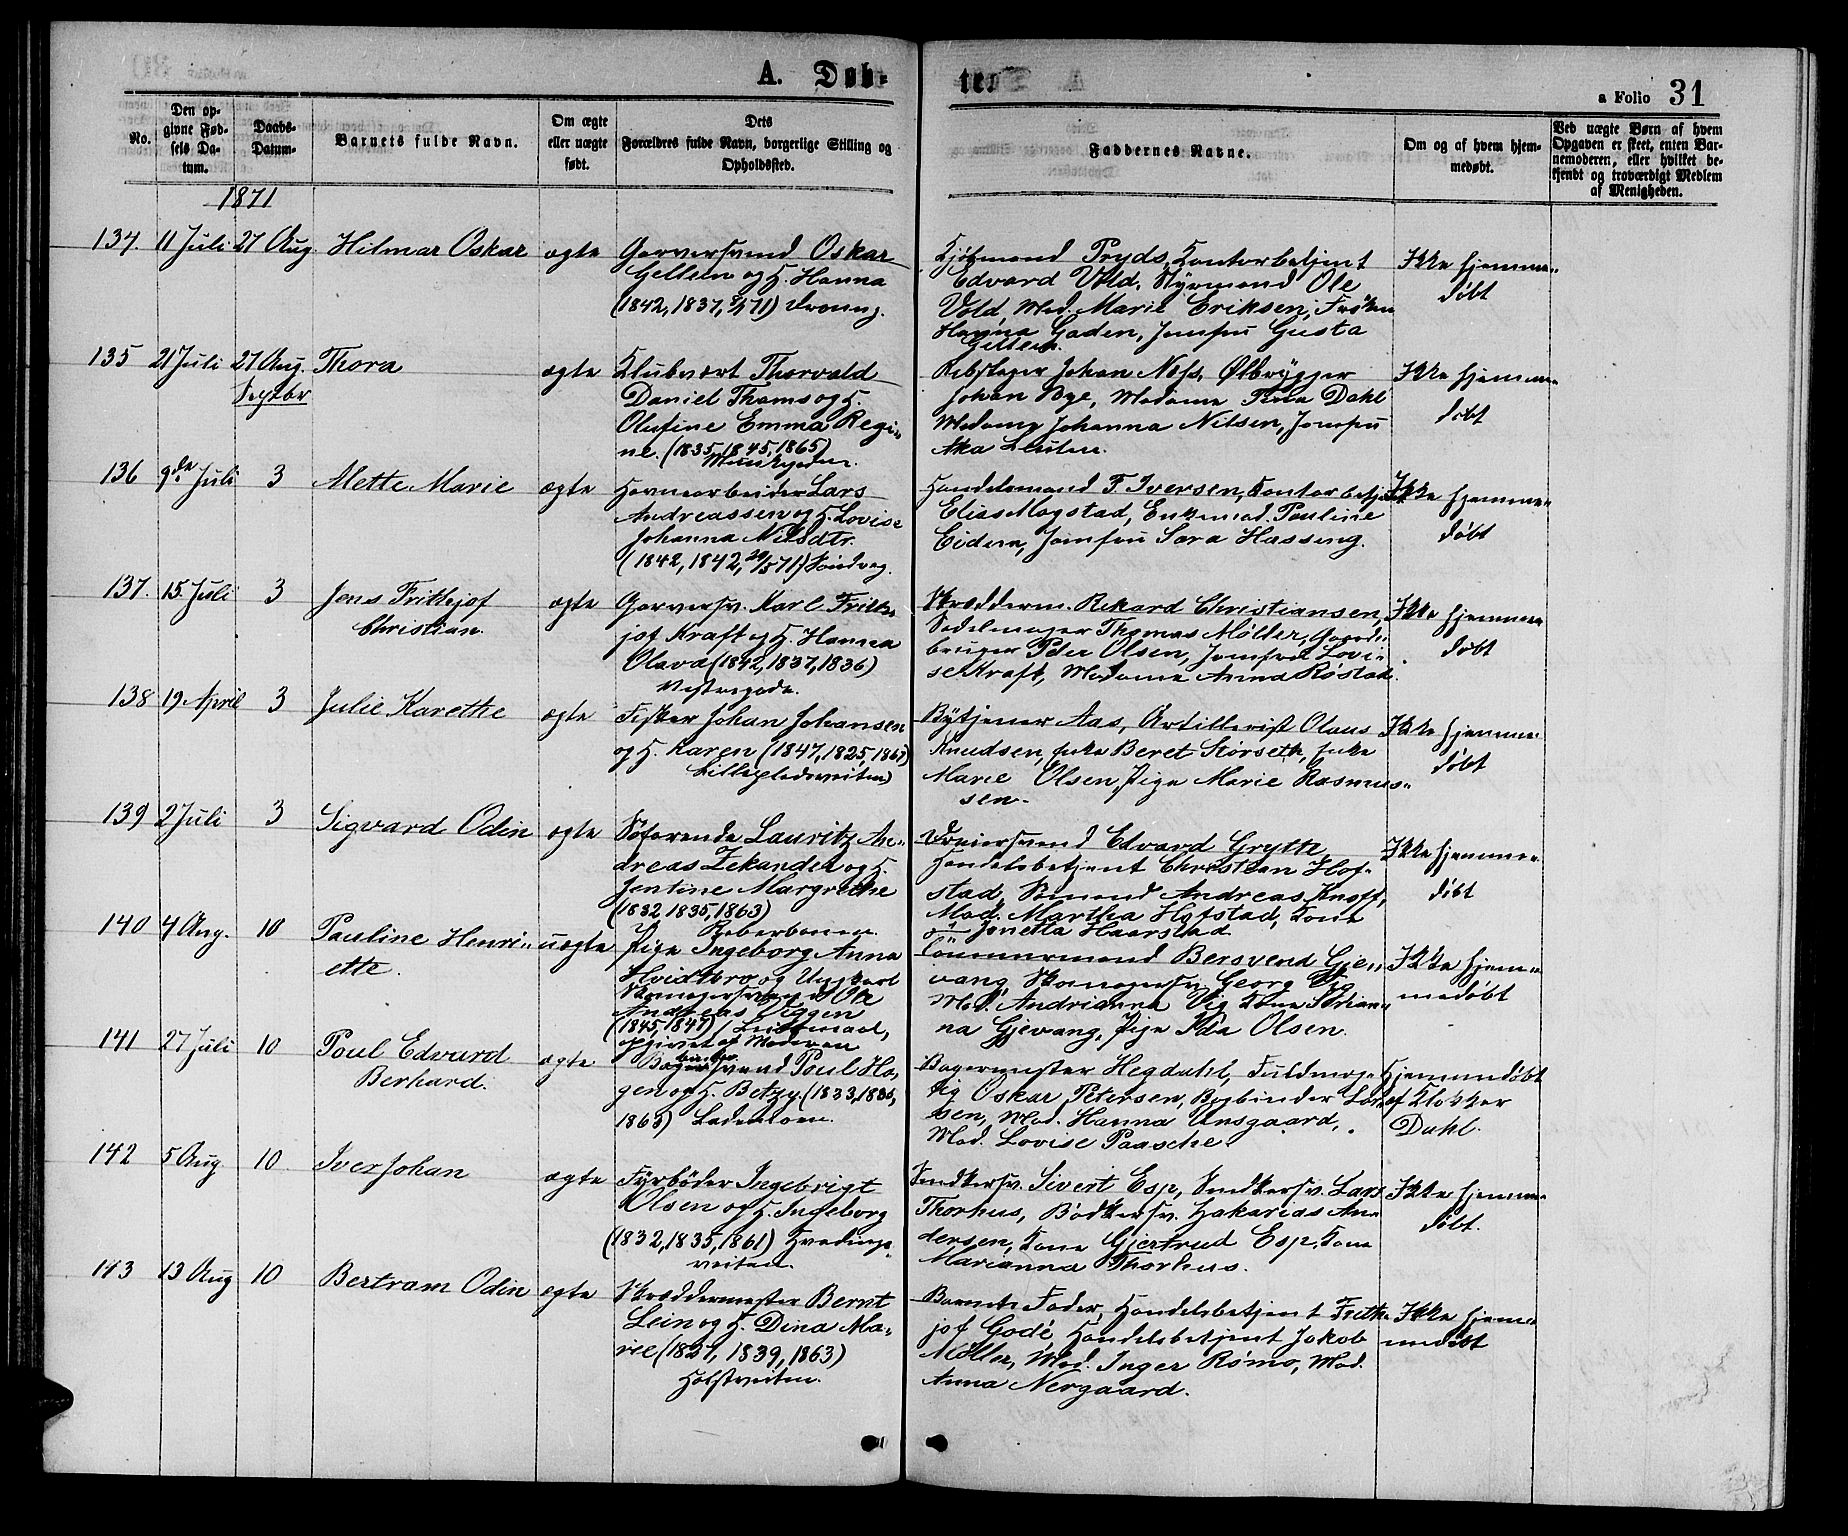 A. Døb-
tes
a Folio 31
No.
Den op-
givne Fød-
sels Da-
tum.
Daabs-
Datum.
Barnets fulde Navn.
Om ægte
eller uægte
født.
Dets
Forældres fulde Navn, borgerlige Stilling og
Opholdssted.
Faddernes Navne.
Om og af hvem hjem-
medøbt.
Ved uægte Børn af hvem
Opgaven er skeet, enten Bar-
nemoderen, eller hvilket be-
kjendt og troværdigt Medlem
af Menigheden.
1871
134. 11 Juli 27 Aug. Hilmar Oskar ægte
Garversvend Oskar
Gellein og H. Hanna
(1842, 1837, /71)
Kjøbmand Pryds, Kontorbetjent
Edvard Vold, Styrmand Ole
Vold, Mad. Marie Eriksen, Frøken
Hanna Gaden, Jomfru Gusta
Gellein.
Ikke hjemme-
døbt
135 21 Juli 27 Aug. Thora ægte
Septbr
Klubvært Thorvald
Daniel Thams og H.
Olufine Emma Regi-
ne. (1835, 1845, 1865)
Rebslager Johan Næss, Ølbrygger
Johan Bye, Madame Dahl
Madame Johanna Nilsen, Jomfru
Ikke hjemme
døbt
136 9de Juli 3 Mette Marie ægte
Havnearbeider Lars
Andreassen og H. Lovise
Johanna Nilsdtr.
(1842, 1842, 29/5 71)
Handelsmand F. Iversen, Kontorbetjent
Elias Magstad, Enkemad. Pauline
Eidem, Jomfru Sara Hassing.
Ikke hjemme-
døbt
137. 15. Juli 3 Jens Frithjof
Christian. ægte
Garversv. Karl Frith-
jof Kraft og H. Hanna
Olava (1842, 1837, 1836)
Skrædderm. Rikard Christiansen,
Sadelmager Thomas Møller, Gaard-
bruger Peter Olsen, Jomfru Lovi-
se Kraft, Madame Anna Røstad.
Ikke hjemme
døbt
138 19. April 3 Julie Karethe ægte
Fisker Johan Johansen
og H. Karen (1847, 1825, 1863)
Bytjener Aas, Artillerist Olaus
Knudsen, Enke Beret Størseth, Enke
Marie Olsen, Pige Marie Rasmus-
sen.
Ikke hjemme-
døbt
139 2 Juli 3 Sigvard Odin ægte
Søfarende Lauritz An-
dreas Zekander og H.
Jentine Margrethe
(1832, 1835, 1863)
Dreiersvend Edvard Grytte
Handelsbetjent Christian Hof-
stad, Sømand Andreas Knoff,
Mad. Martha Hofstad, Kone
Jonetta Haarstad.
Ikke hjemme-
døbt
140 4 Aug. 10 Pauline Henri-
ette. uægte
Pige Ingeborg Anna
Hvidtbro og Ungkarl
Skomagersvend Ole
Andreas Viggen
(1845, 1847) / Leiermaal,
opgivet af Moderen
Tømmermand Bersvend Gje-
vang, Skomagersv. Georg Vig
Mad. Andrianna Vig Kone Johan-
na Gjevang, Pige Ida Olsen.
Ikke hjem-
medøbt
141 27 Juli 10 Poul Edvard
Berhard. ægte
Bogbindersvend Poul Ha-
gen og H. Betzy. (1833, 1836,
1863) Lademoen.
Bagermester Hegdahl, Fuldmæg-
tig Oskar Petersen, Bogbinder Lar-
sen, Mad. Hanna Ansgaard,
Mad. Lovise Paasche.
Hjemmedøbt
af Klokker
Dahl.
142 5 Aug 10 Iver Johan ægte
Fyrbøder Ingebrigt
Olsen og H. Ingeborg
(1832, 1835, 1861) Hvedings-
veiten.
Snedkersv. Sivert Esp, Snedkersv. Lars
Thorhus, Bødkersv. Zakarias An-
dersen, Kone Gjertrud Esp, Kone
Marianna Thorhus.
Ikke hjemme-
døbt.
143 13 Aug 10 Bertram Odin ægte
Skræddermester Bernt
Lein og H. Dina Ma-
rie (1827, 1839, 1863)
Holstveiten.
Barnets Fader, Handelsbetjent Frith-
jof Godé, Handelsbetjent Jakob
Møller, Mad. Inger Rømo, Mad.
Anna Nergaard.
Ikke hjem-
medøbt